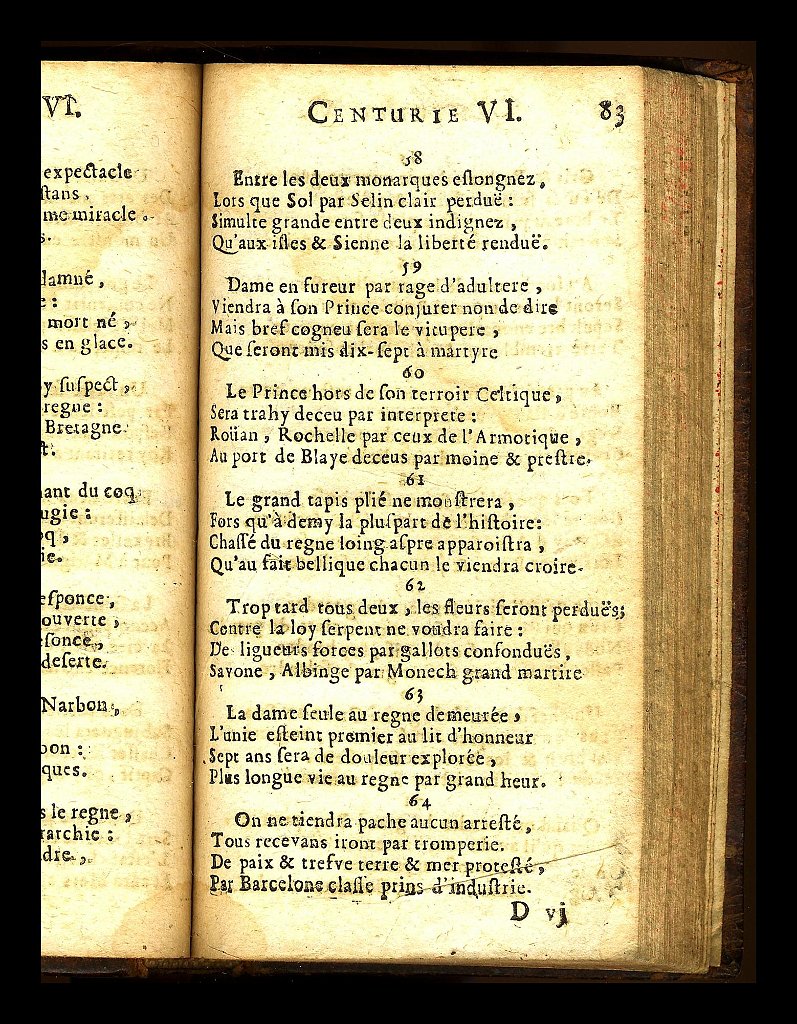 VI.
expectacle
stans,
me miracle.
s.
damné,
e :
mort né,
s en glace.
y suspect,
regne :
Bretagne
t.
ant du coq
ugie :
oq,
ie.
esponce,
ouverte,
sonce,
deserte.
Narbon,
bon :
ques.
s le regne,
rarchie :
dre,
CENTURIE VI. 83
58
Entre les deux monarques eslongnez,
Lors que Sol par Selin clair perduë :
Simulte grande entre deux indignez,
Qu'aux isles & Sienne la liberté renduë.
59
Dame en fureur par rage d'adultere,
Viendra à son Prince conjurer non de dire
Mais bref cogneu sera le vitupere,
Que seront mis dix-sept à martyre
60
Le Prince hors de son terroir Celtique,
Sera trahy deceu par interprete :
Roüan, Rochelle par ceux de l'Armotique,
Au port de Blaye deceus par moine & prestre.
61
Le grand tapis plié ne monstrera,
Fors qu'à demy la pluspart de l'histoire:
Chassé du regne loing aspre apparoistra,
Qu'au fait bellique chacun le viendra croire.
62
Trop tard tous deux, les fleurs seront perduës;
Contre la loy serpent ne voudra faire :
De ligueurs forces par gallots confonduës,
Savone, Albinge par Monech grand martire
63
La dame seule au regne demeurée,
L'unie esteint premier au lit d'honneur
Sept ans sera de douleur explorée,
Plus longue vie au regne par grand heur.
64
On ne tiendra pache aucun arresté,
Tous recevans iront par tromperie.
De paix & trefve terre & mer protesté,
Par Barcelone classe prins d'industrie.
D vj